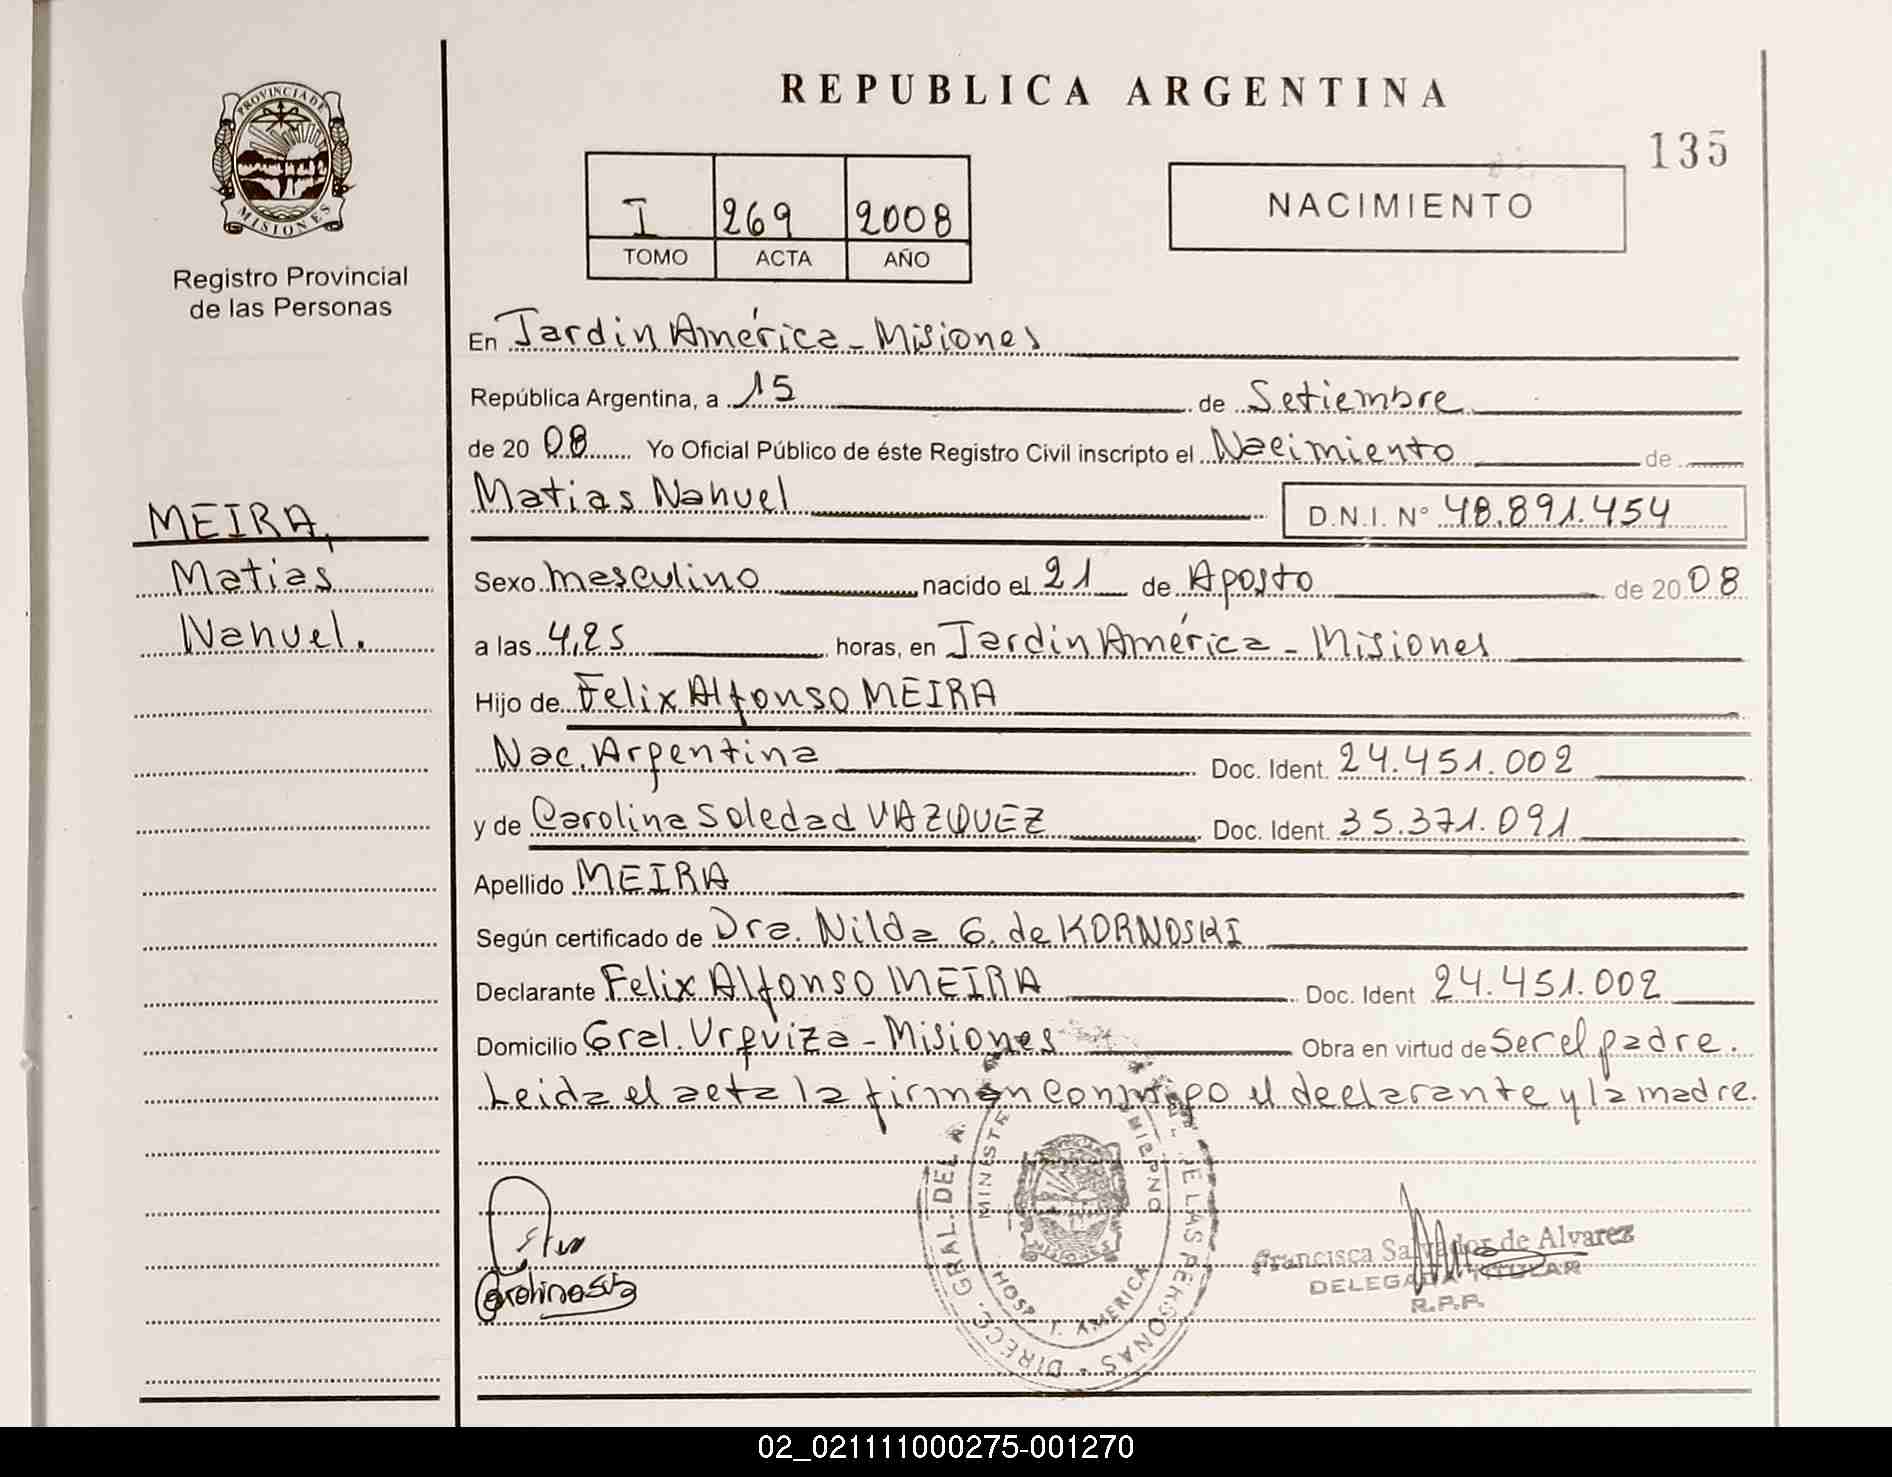 REPUBLICA ARGENTINA
135
PROVINCIA DE
MISIONES
Registro Provincial
de las Personas
I 269 2008
TOMO ACTA AÑO
NACIMIENTO
En Jardin América - Misiones
República Argentina, a 15 de Setiembre
de 20 08 Yo Oficial Público de éste Registro Civil inscripto el Nacimiento de
Matias Nahuel D.N.I. N° 48.891.454
MEIRA,
Matias
Nahuel.
Sexo masculino nacido el 21 de Agosto de 20 08
a las 4,25 horas, en Jardin América - Misiones
Hijo de Felix Alfonso MEIRA
Nac. Argentina Doc. Ident. 24.451.002
y de Carolina Soledad VAZQUEZ Doc. Ident. 35.371.091
Apellido MEIRA
Según certificado de Dra. Nilda G. de KORNOSKI
Declarante Felix Alfonso MEIRA Doc. Ident 24.451.002
Domicilio Gral. Urquiza - Misiones Obra en virtud de ser el padre.
Leida el acta la firman conmigo el declarante y la madre.
DIRECC. GRAL. DEL DE LAS PERSONAS
HOSP. J. AMERICA
MISIONES
Francisca Salvador de Alvarez
DELEGADA TITULAR
R.P.P.
02_021111000275-001270